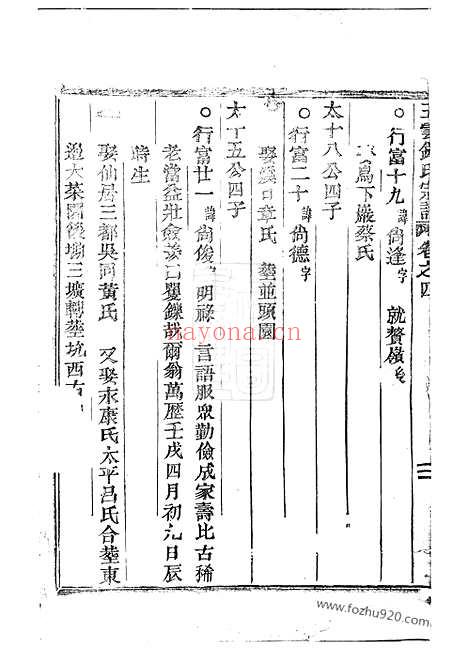 五雲錢氏宗譜 卷之四
○行富十九 諱 尚逢 字 就贅嶺後
鳥下巖蔡氏
太十八公四子
○行富二十 諱 尚德 字
娶溪口章氏 塟並頭園
太十五公四子
○行富廿一 諱 尚俊 明祿 言語服眾勤儉成家壽比古稀
老當益壯僉羨曰矍鑠哉爾翁萬歷壬戌四月初九日辰
時生
娶仙居三都吳同黃氏 又娶永康氏太平呂氏合塟東
邉大菜園後塝三壙轉塟坑西
nayona.cn
www.fozhu920.com